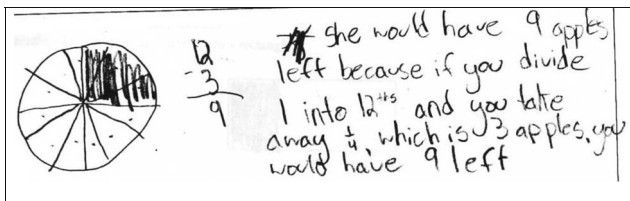 12
-3
9
she would have 9 apples
left because if you divide
1 into 12ths and you take
away 1/4, which is 3 apples, you
would have 9 left